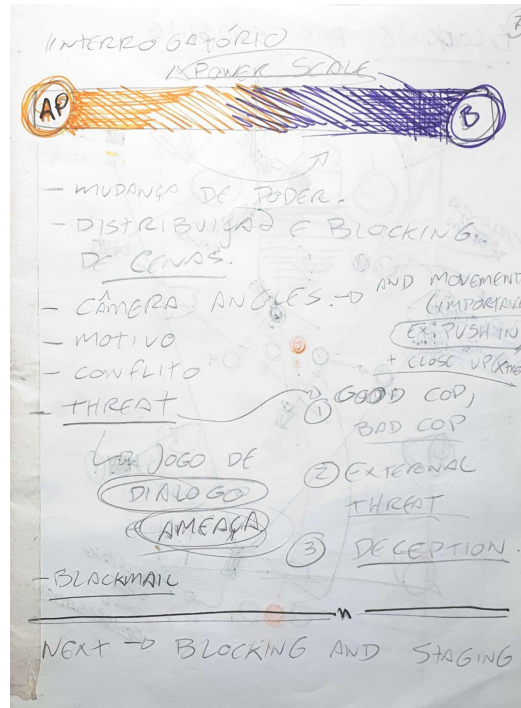 INTERROGATÓRIO
POWER SCALE
AP
B
- MUDANÇA DE PODER.
- DISTRIBUIÇÃO E BLOCKING
DE CENAS.
- CÂMERA ANGLES. → AND MOVEMENT
(IMPORTANT
EX: PUSH IN
+ CLOSE UP
- MOTIVO
- CONFLITO
- THREAT
① GOOD COP,
BAD COP
↳ JOGO DE
DIALOGO
E AMEAÇA
② EXTERNAL
THREAT
③ DECEPTION
- BLACKMAIL
NEXT → BLOCKING AND STAGING